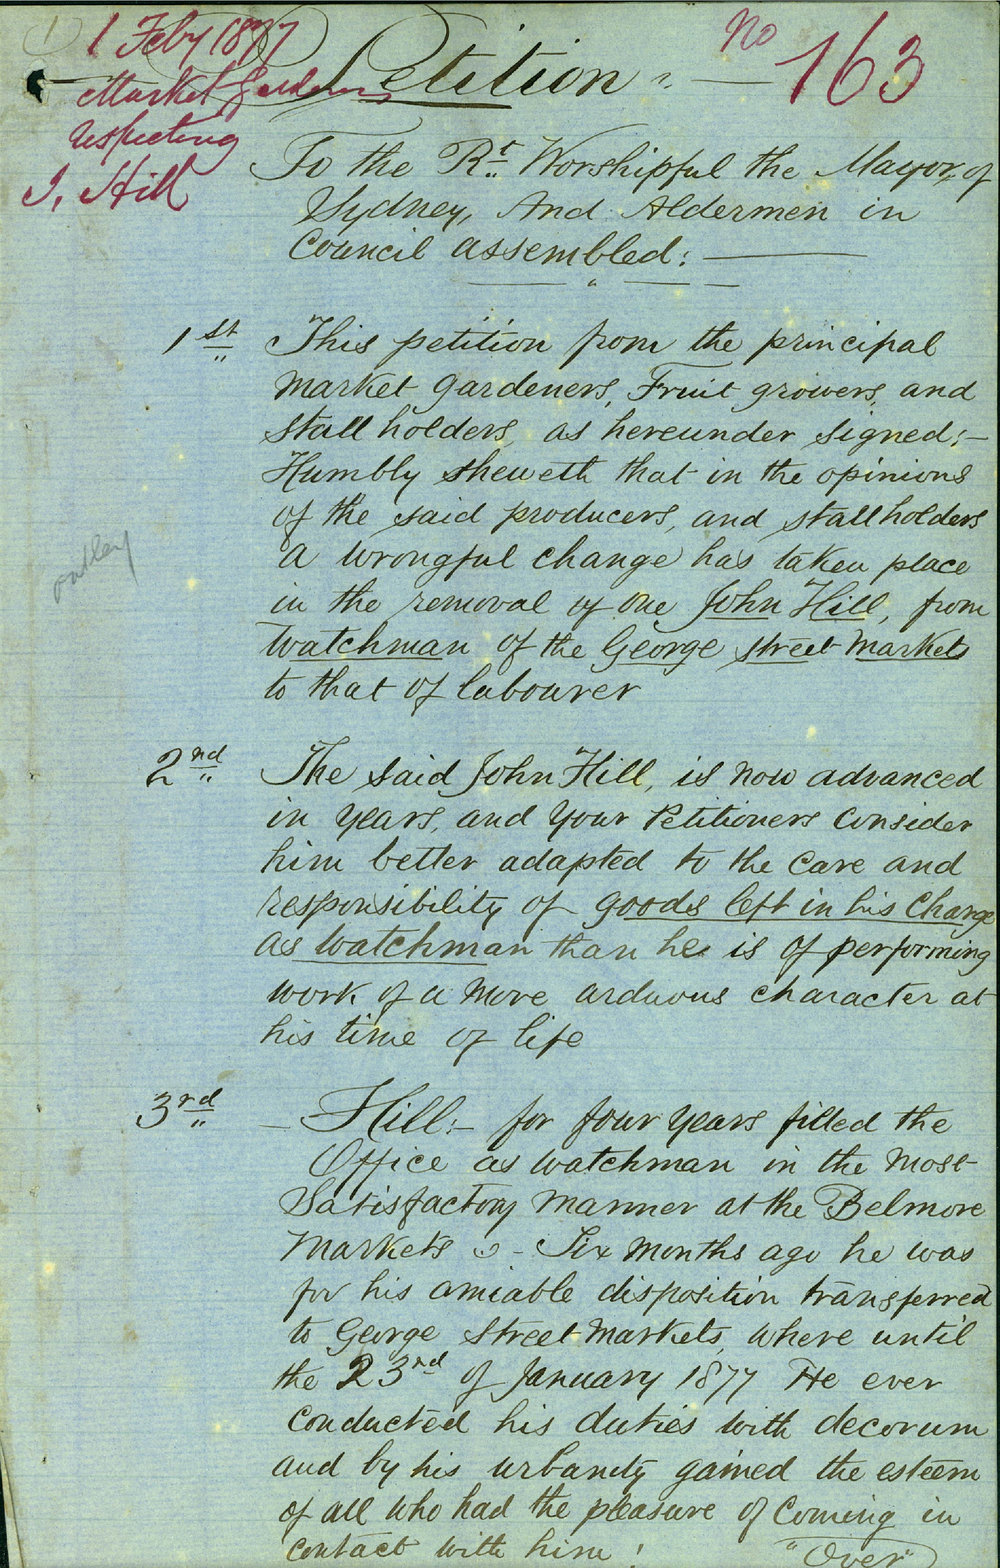 (1)
1 Feby 1877
Market Gardeners
respecting
J. Hill
No 163
Petition :—
To the Rt. Worshipful the Mayor, of
Sydney, And Aldermen in
Council assembled : —
1st This petition from the principal
Market gardeners, Fruit growers, and
Stall holders, as hereunder signed ;—
Humbly sheweth that in the opinions
of the said producers, and stallholders
a wrongful change has taken place
in the removal of one John Hill, from
Watchman of the George street Markets
to that of labourer
2nd The said John Hill, is now advanced
in years, and your Petitioners Consider
him better adapted to the care and
responsibility of goods left in his Charge
as watchman than he is of performing
work of a more arduous character at
his time of life
3rd — Hill :— for four years filled the
Office as watchman in the most
Satisfactory manner at the Belmore
Markets - Six months ago he was
for his amiable disposition transferred
to George Street Markets, where until
the 23rd of January 1877 He ever
conducted his duties with decorum
and by his urbanity gained the esteem
of all who had the pleasure of Coming in
contact with him !
"Over"